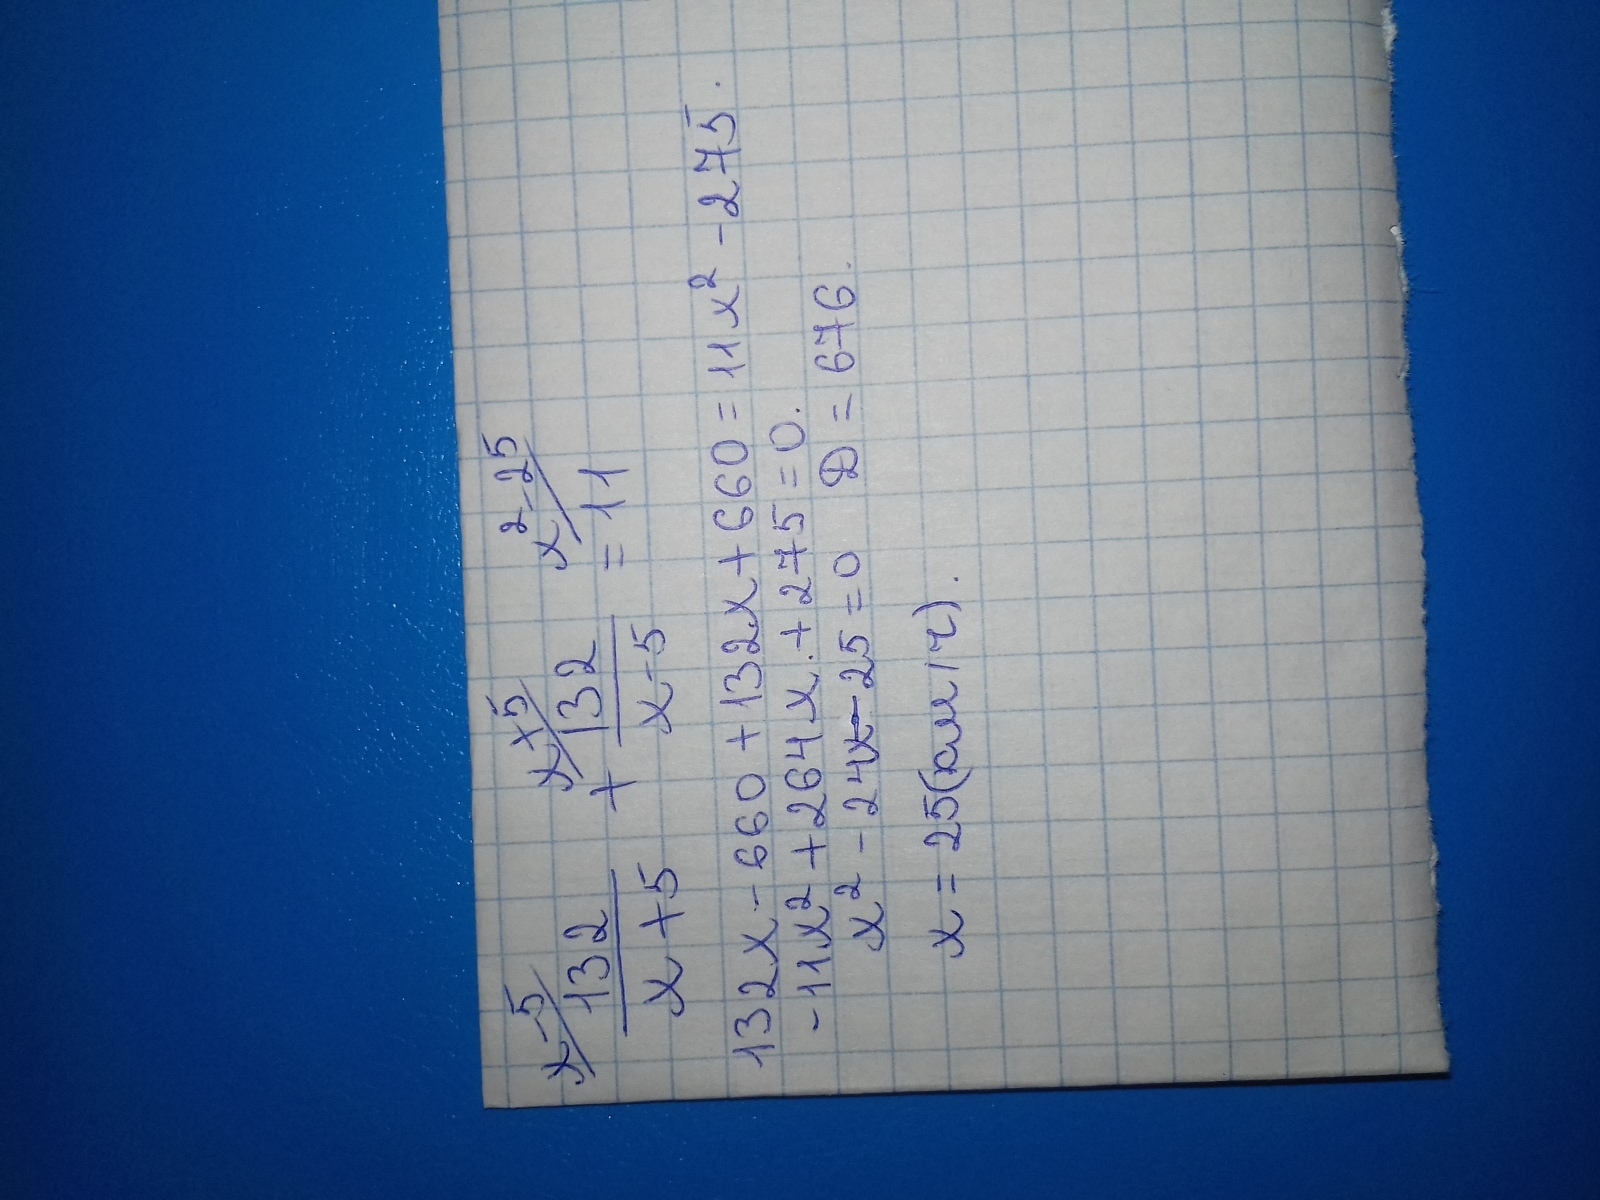 x-5/ x+5/ x²-25/
132/(x+5) + 132/(x-5) = 11
132x-660+132x+660=11x²-275.
-11x²+264x.+275=0.
x²-24x-25=0 D=676.
x=25(км/ч).